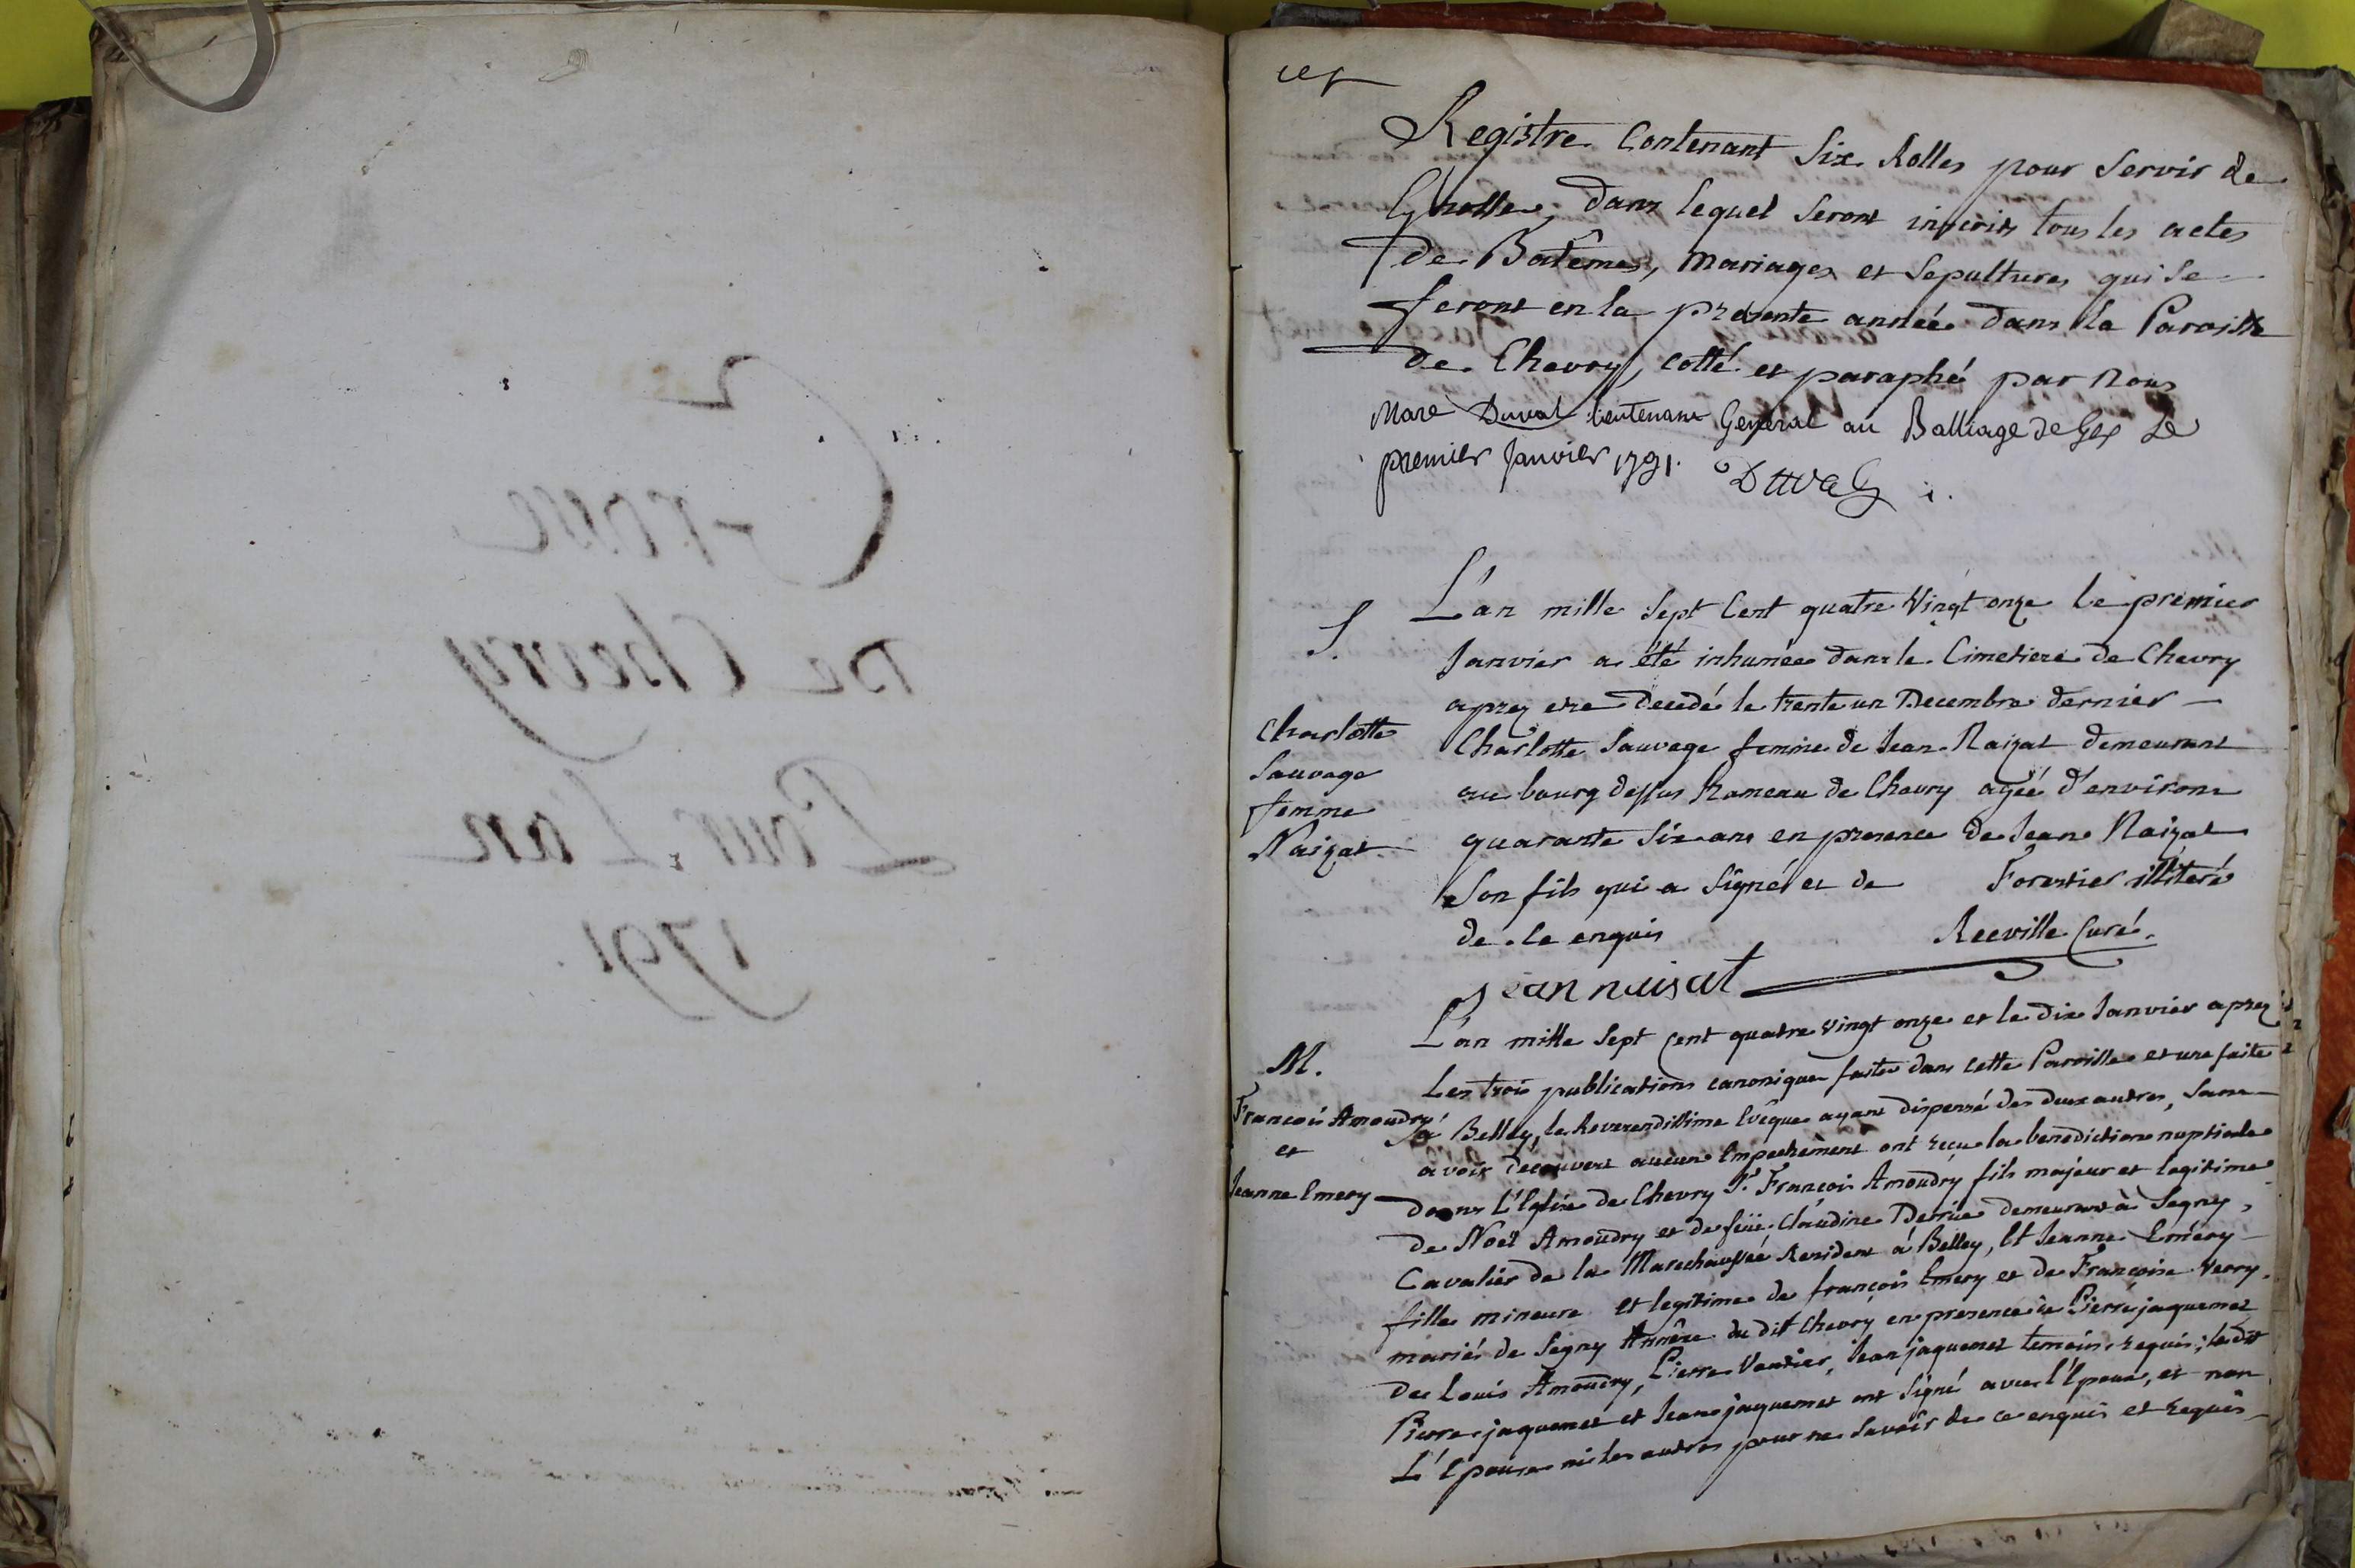 Grosse
De Chevry
Pour L'an
1791.
Registre Contenant Six Rolles pour Servir de
Grosse, dans lequel Seront inscrits tous les actes
de Batêmes, Mariages et Sepultures qui Se
feront en la presente année dans la Paroisse
de Chevry, cotté et paraphé par Nous
Marc Duval lieutenant General au Balliage de Gex Le
premier Janvier 1791. Duval
S.
Charlotte
Sauvage
femme
Naizat
L'an mille Sept Cent quatre Vingt onze le premier
Janvier a été inhumée dans le Cimetiere de Chevry
aprez etre decedé le trente un Decembre dernier
Charlotte Sauvage femme de Jean Naizat demeurant
au bourg dessus hameau de Chevry agée d'environ
quarante Six ans en presence de Jean Naizat
Son fils qui a Signé et de Forestier illiteré
de ce enquis Reeville Curé.
Jean naisat
M.
François Amoudry
et
Jeanne Emery
L'an mille Sept Cent quatre vingt onze et le dix Janvier aprez
Les trois publications canoniques faites dans cette Paroisse et une faite
à Belley, le Reverendissime Evêque ayant dispensé des deux autres, Sans
avoir decouvert aucun Empechement ont reçu la benediction nuptiale
dans L'Eglise de Chevry Sr. François Amoudry fils majeur et legitime
de Noël Amoudry et de feüe Claudine Derrüe demeurant à Segny,
Cavalier de la Marechaussée Resident à Belley, Et Jeanne Emery
fille mineure et legitime de françois Emery et de Françoise Verry
mariés de Segny Annêxe du dit Chevry en presence de Pierre jaquemet
de Louis Amoudry, Pierre Vautier, Jean jaquemet temoins requis; ledit
Pierre jaquemet et Jean jaquemet ont Signé avec l'Epoux, et non
L'Epouse ni les autres pour ne Savoir de ce enquis et requis